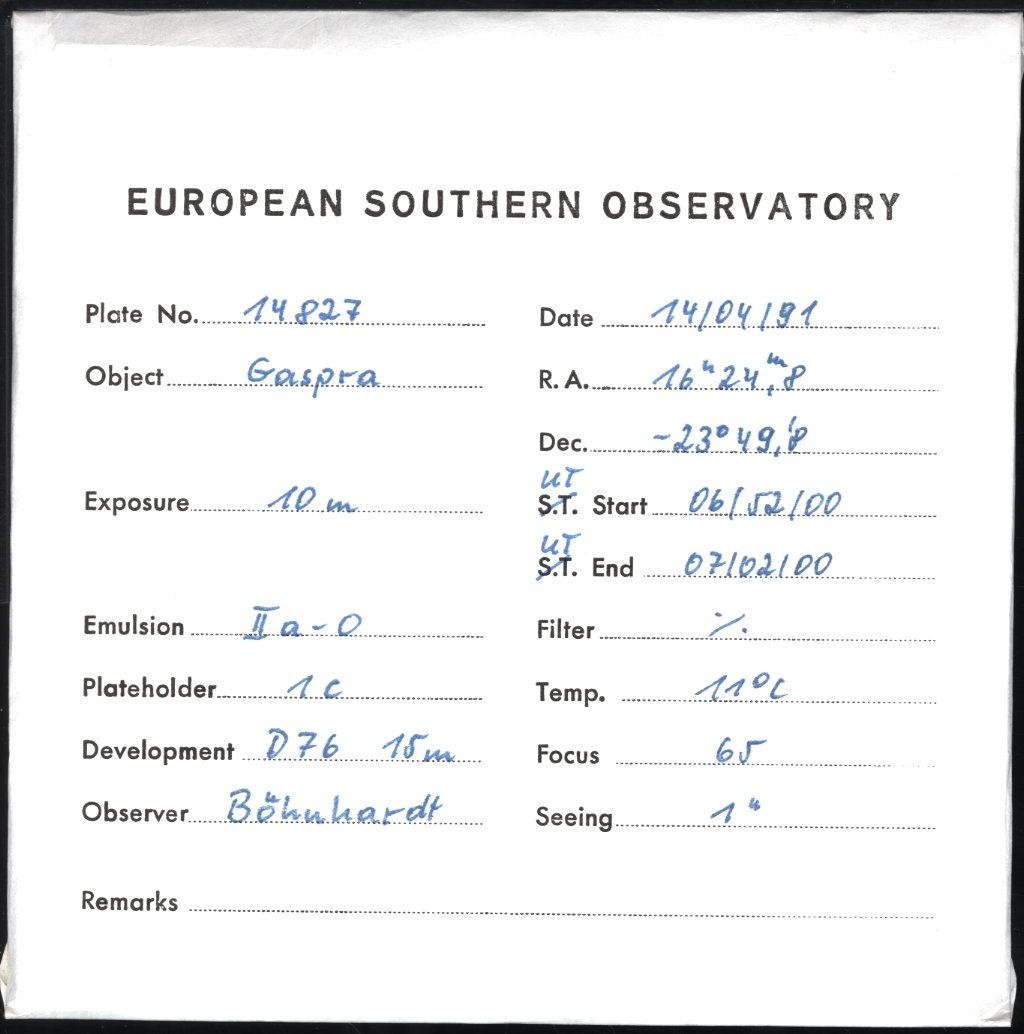 EUROPEAN SOUTHERN OBSERVATORY
Plate No. 14827 Date 14/04/91
Object Gaspra R.A. 16ʰ24ᵐ,8
Dec. -23°49,'8
Exposure 10 m UT S.T. Start 06/52/00
UT S.T. End 07/02/00
Emulsion IIa-O Filter ./.
Plateholder 1c Temp. 11°C
Development D76 15m Focus 65
Observer Böhnhardt Seeing 1"
Remarks